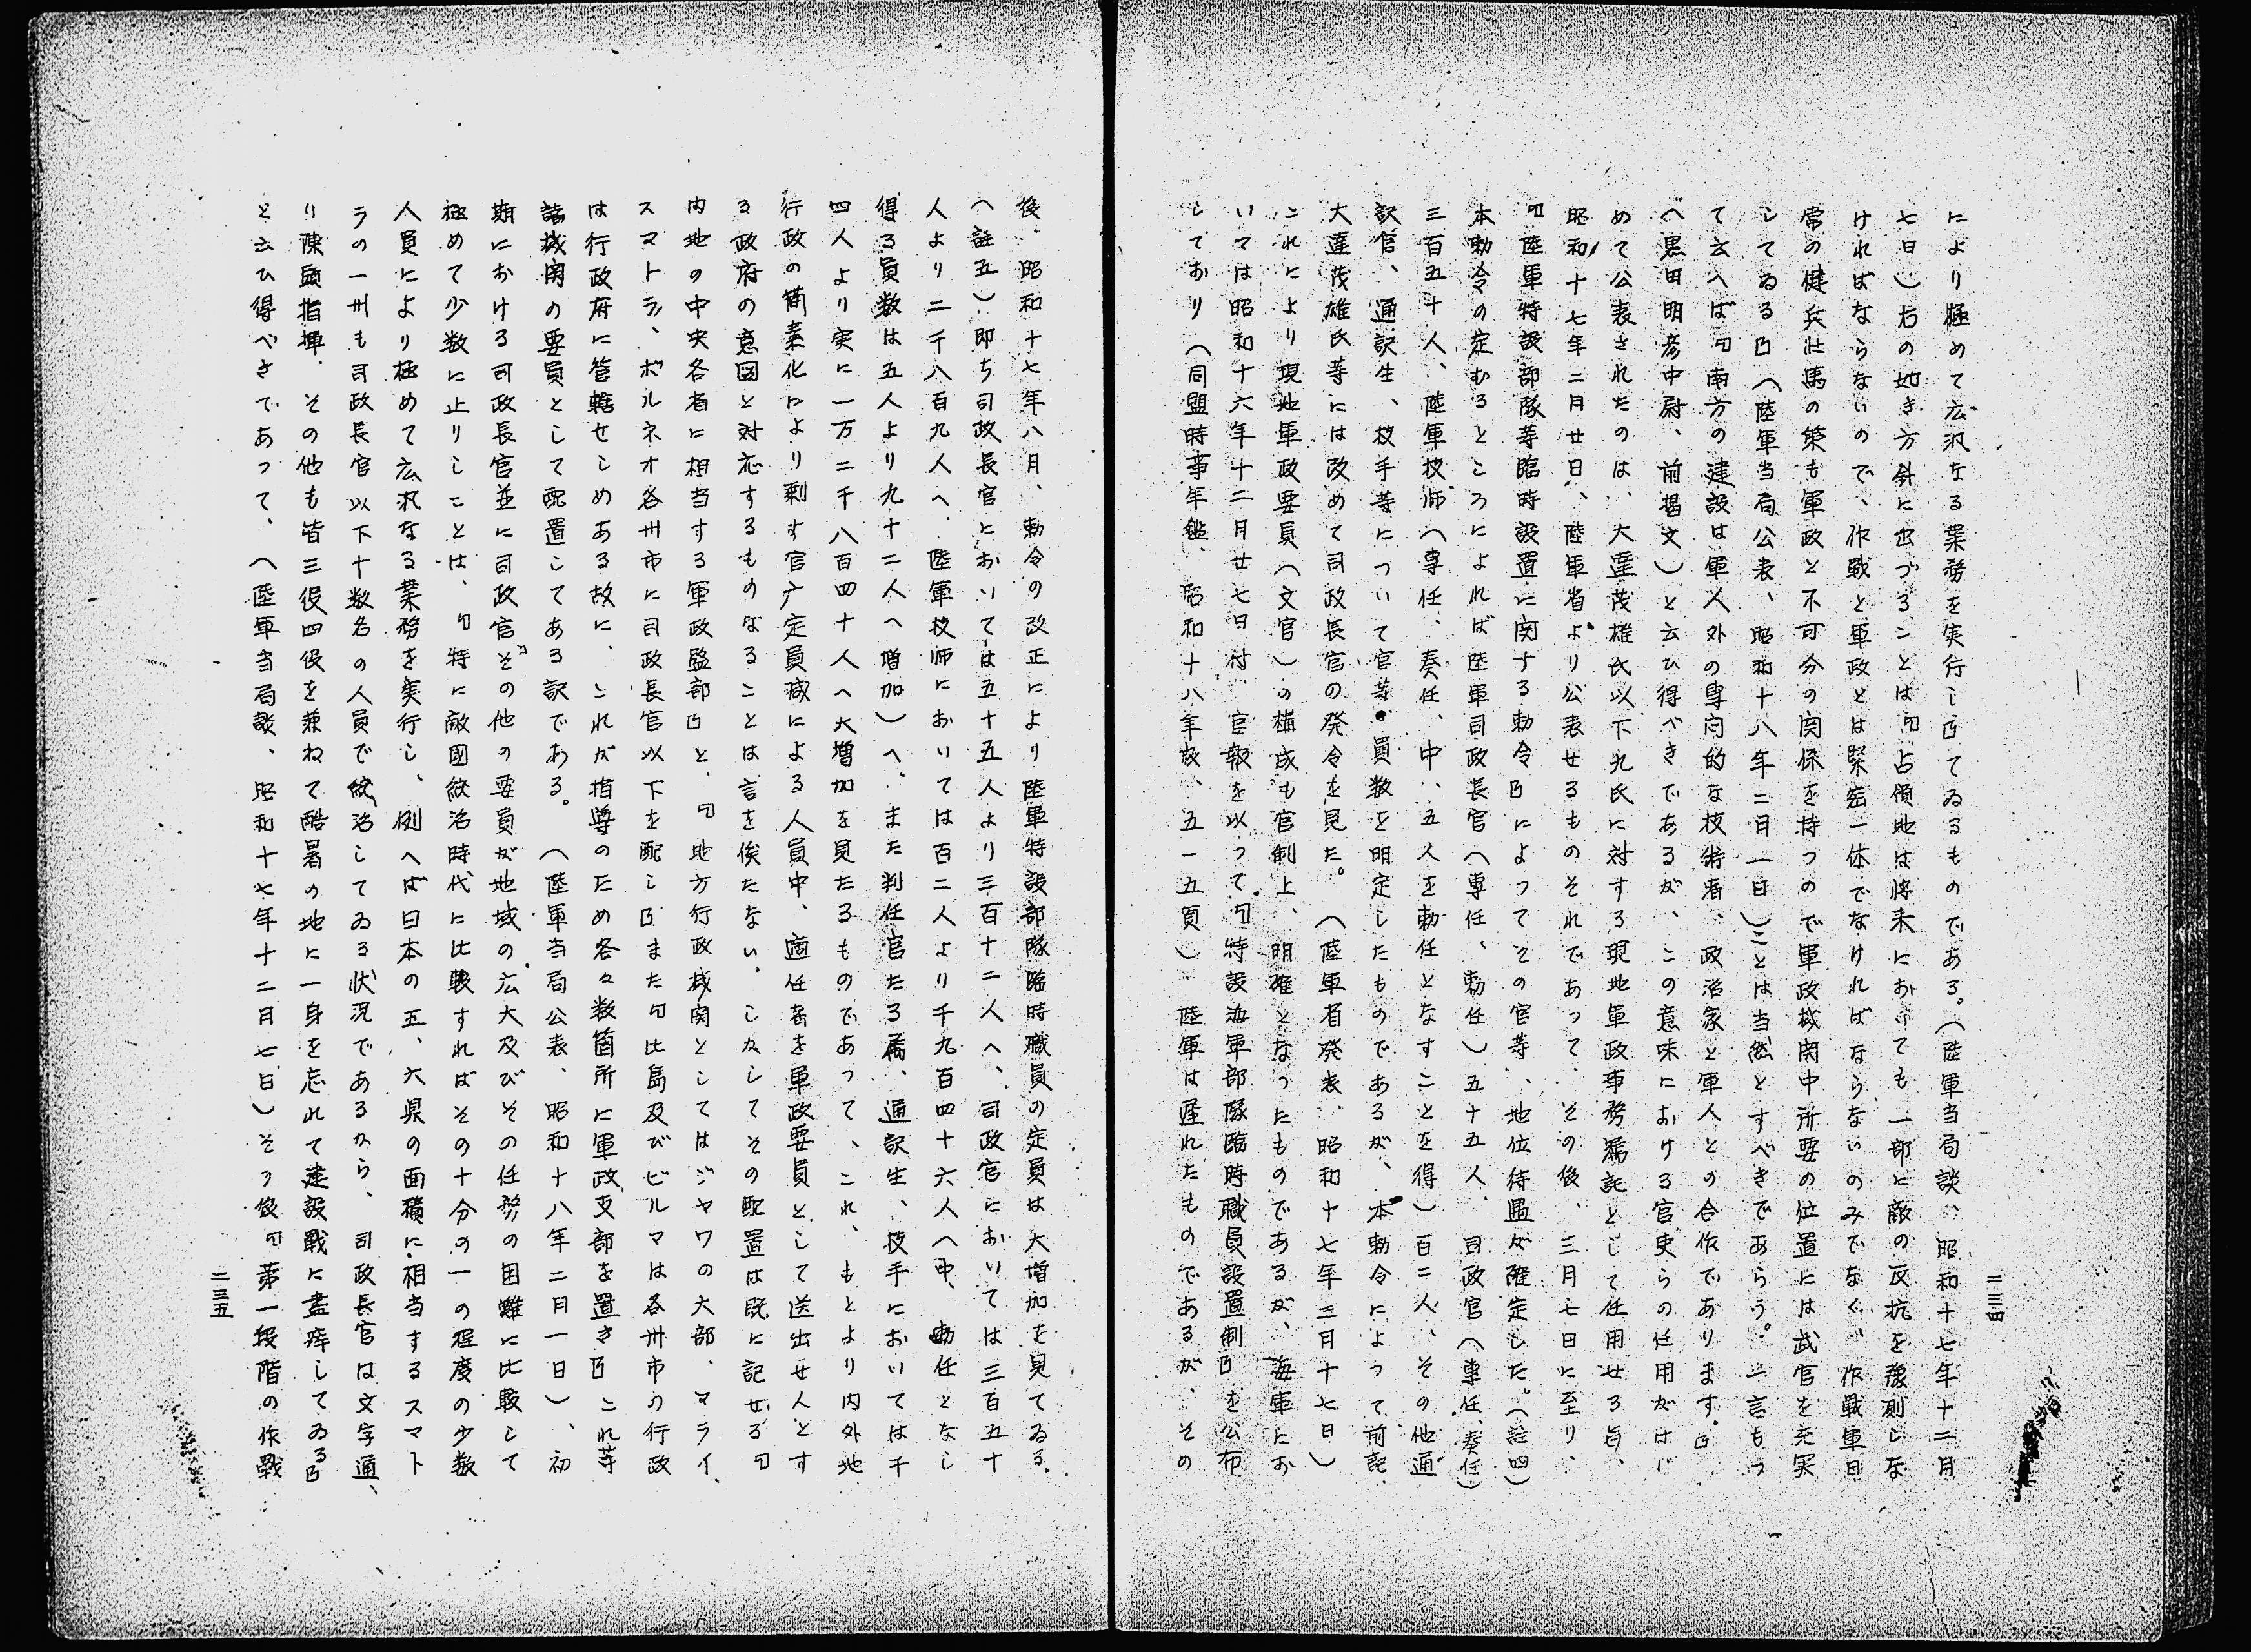 により極めて広汎なる業務を実行し』てゐるものである。（陸軍当局談、昭和十七年十二月
七日）右の如き方針に出づることは『占領地は将来においても一部に敵の反抗を予測しな
ければならないので、作戦と軍政とは緊密一体でなければならないのみでなく、作戦軍日
常の健兵壮馬の策も軍政と不可分の関係を持つので軍政機関中所要の位置には武官を充実
してゐる』（陸軍当局公表、昭和十八年二月一日）ことは当然とすべきであらう。一言もつ
て云へば『南方の建設は軍人外の専門的な技術者、政治家と軍人との合作であります。』
（黒田明彦中尉、前掲文）と云ひ得べきであるが、この意味における官吏らの任用がはじ
めて公表されたのは、大達茂雄氏以下九氏に対する現地軍政事務嘱託として任用せる旨、
昭和十七年二月廿日、陸軍省より公表せるものそれであって、その後、三月七日に至り、
『陸軍特設部隊等臨時設置に関する勅令』によってその官等、地位待遇が確定した。（註四）
本勅令の定むるところによれば陸軍司政長官（専任、勅任）五十五人、司政官（専任、奏任）
三百五十人、陸軍技師（専任、奏任、中、五人を勅任となすことを得）百二人、その他通
訳官、通訳生、技手等について官等・員数を明定したものであるが、本勅令によって前記
大達茂雄氏等には改めて司政長官の発令を見た。（陸軍省発表、昭和十七年三月十七日）
これにより現地軍政要員（文官）の構成も官制上、明確となつたものであるが、海軍にお
いては昭和十六年十二月廿七日付、官報を以って『特設海軍部隊臨時職員設置制』を公布
しており（同盟時事年鑑、昭和十八年版、五一五頁）陸軍は遅れたものであるが、その
二三四
後、昭和十七年八月、勅令の改正により陸軍特設部隊臨時職員の定員は大増加を見てゐる。
（註五）即ち司政長官においては五十五人より三百十二人へ、司政官においては三百五十
人より二千八百九人へ、陸軍技師においては百二人より千九百四十六人へ中、勅任となし
得る員数は五人より九十二人へ増加）へ、また判任官たる属、通訳生、技手においては千
四人より実に一万二千八百四十人へ大増加を見たるものであって、これ、もとより内外地
行政の簡素化により剰す官庁定員減による人員中、適任者を軍政要員として送出せ人とす
る政府の意図と対応するものなることは言を俟たない。しかしてその配置は既に記せる『
内地の中央各省に相当する軍政監部』と、『地方行政機関としてはジャワの大部、マライ、
スマトラ、ボルネオ各州市に司政長官以下を配し』また『比島及びビルマは各州市の行政
は行政府に管轄せしめある故に、これが指導のため各々数箇所に軍政支部を置き』これ等
諸機関の要員として配置してある訳である。（陸軍当局公表、昭和十八年二月一日）、初
期における司政長官並に司政官その他の要員が地域の広大及びその任務の困難に比較して
極めて少数に止りしことは、『特に敵国統治時代に比較すればその十分の一の程度の少数
人員により極めて広汎なる業務を実行し、例へば日本の五、六県の面積に相当するスマト
ラの一州も司政長官以下十数名の人員で統治してゐる状況であるから、司政長官は文字通
り陳頭指揮、その他も皆三役四役を兼ねて酷暑の地に一身を忘れて建設戦に尽瘁してゐる』
と云ひ得べきであって、（陸軍当局談、昭和十七年十二月七日）その後『第一段階の作戦
二三五